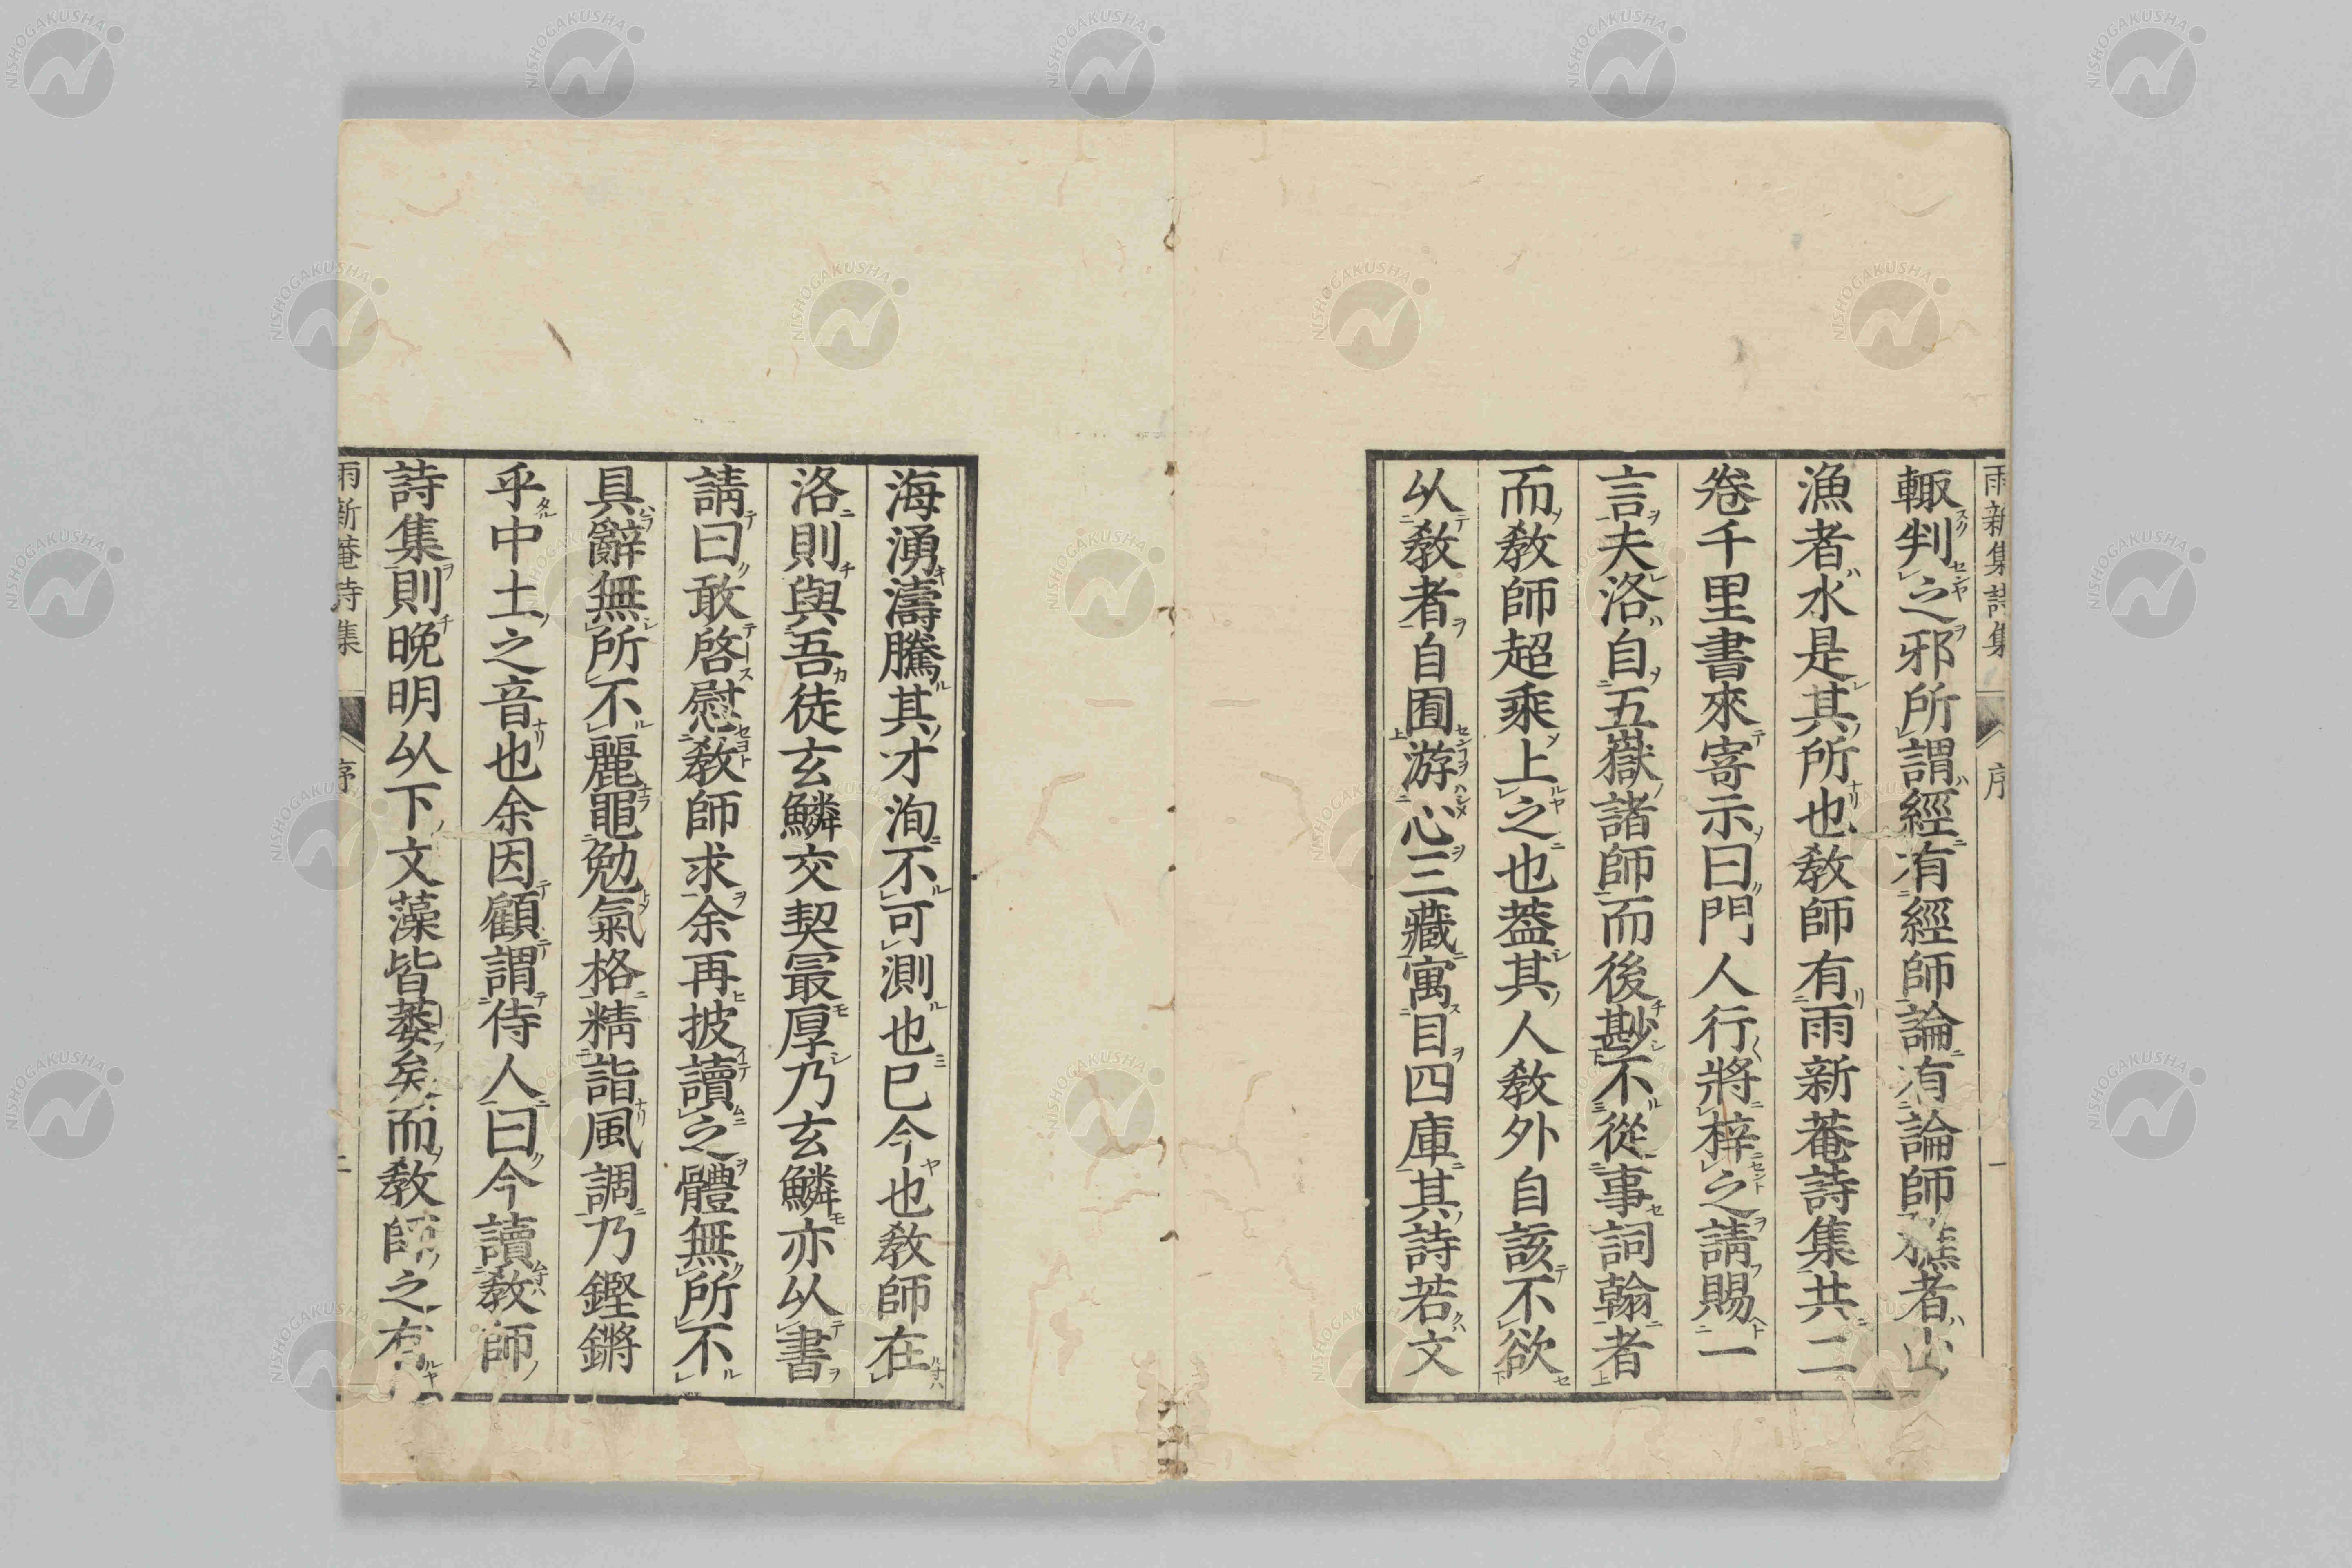 雨新菴詩集 序 一
輙判之邪所謂經有經師論有論師樵者山
漁者水是其所也教師有雨新菴詩集共二
卷千里書來寄示曰門人行將梓之請賜一
言夫洛自五嶽諸師而後尠不從事詞翰者
而教師超乘上之也葢其人教外自該不欲
以教者自囿游心三藏寓目四庫其詩若文
海湧濤騰其才洵不可測也已今也教師在
洛則與吾徒玄鱗交契㝡厚乃玄鱗亦以書
請曰敢啓慰教師求余再披讀之體無所不
具辭無所不麗黽勉氣格精詣風調乃鏗鏘
乎中土之音也余因顧謂侍人曰今讀教師
詩集則晚明以下文藻皆萎矣而教師之有
雨新菴詩集 序 二
NISHOGAKUSHA